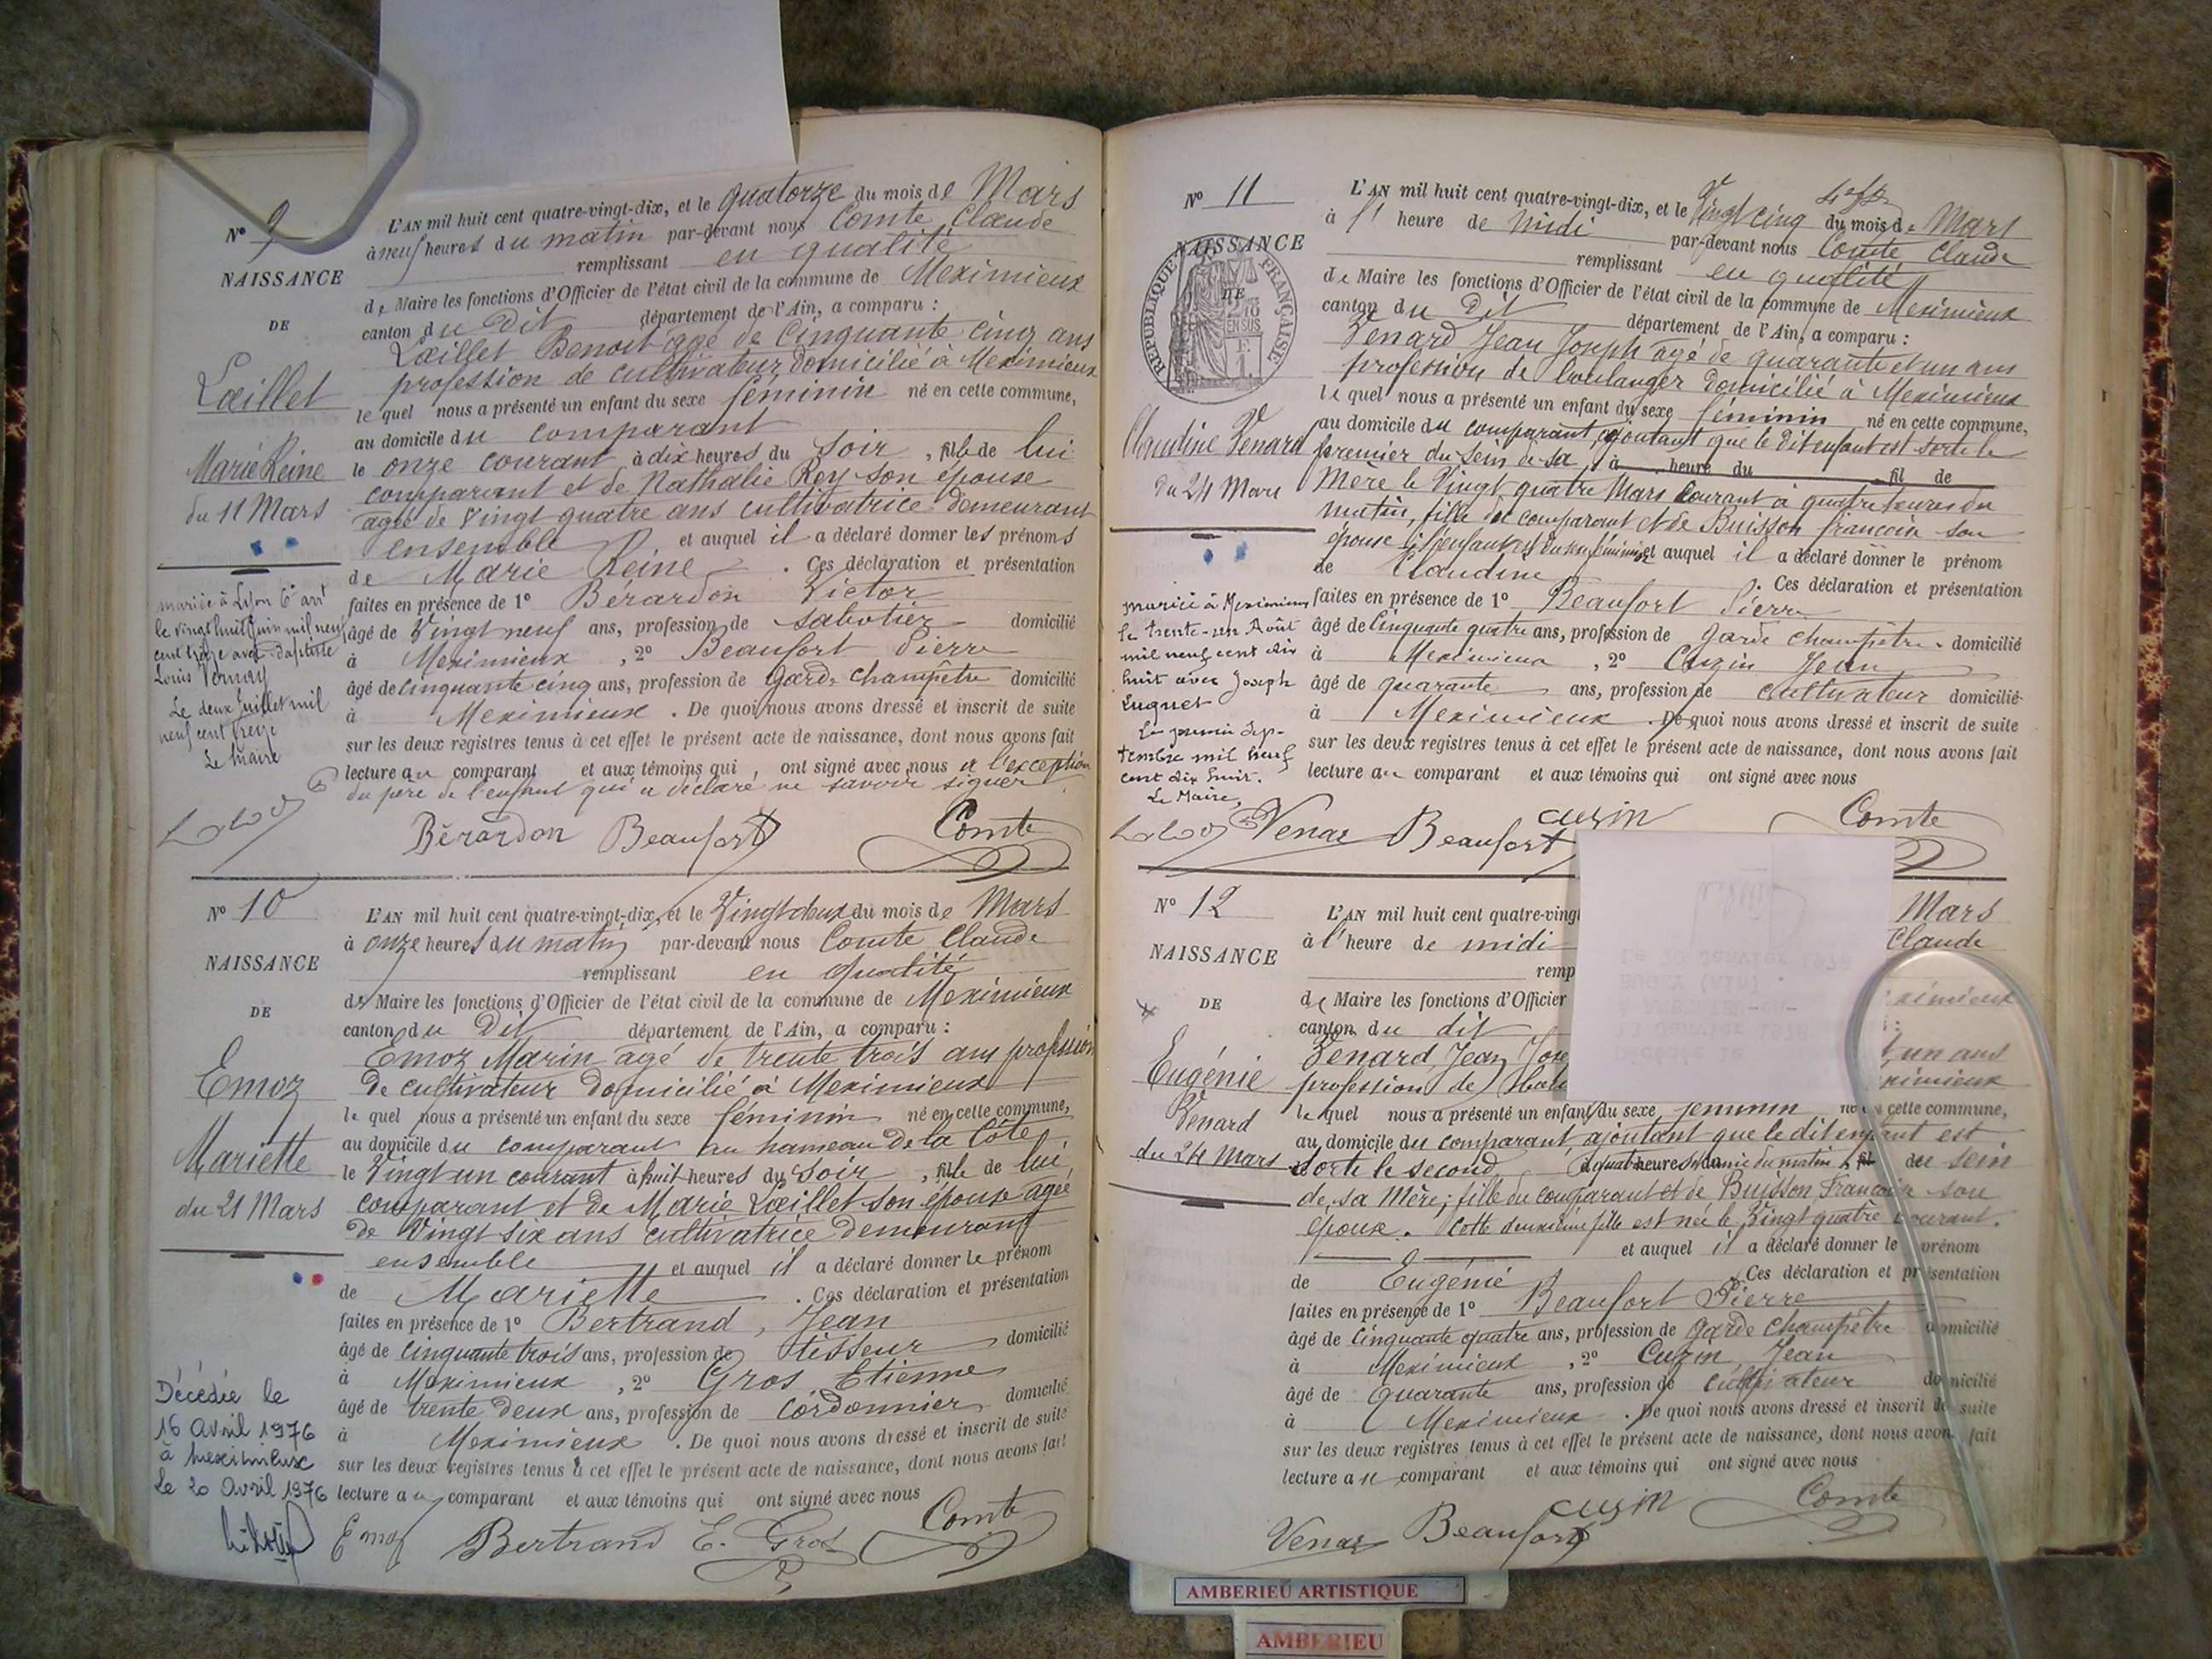 N° 9
NAISSANCE
DE
Lœillet
Marie Reine
du 11 Mars
mariée à Lyon 6e arrt
le vingt huit Juin mil neuf
cent treize avec Baptiste
Louis Vernay
Le deux Juillet mil
neuf cent treize
Le Maire
L'AN mil huit cent quatre-vingt-dix, et le quatorze du mois de Mars
à neuf heures du matin par-devant nous Comte Claude
remplissant en qualité
de Maire les fonctions d'Officier de l'état civil de la commune de Meximieux
canton du Dit département de l'Ain, a comparu :
Lœillet Benoit agé de Cinquante cinq ans
profession de cultivateur Domicilié à Meximieux
le quel nous a présenté un enfant du sexe féminin né en cette commune,
au domicile du comparant
le onze courant à dix heures du soir, fille de lui
comparant et de Nathalie Rey son épouse
agée de Vingt quatre ans cultivatrice demeurant
ensemble et auquel il a déclaré donner les prénoms
de Marie Reine . Ces déclaration et présentation
faites en présence de 1° Berardon Victor
âgé de Vingt neuf ans, profession de sabotier domicilié
à Meximieux , 2° Beaufort Pierre
âgé de Cinquante cinq ans, profession de Garde Champêtre domicilié
à Meximieux . De quoi nous avons dressé et inscrit de suite
sur les deux registres tenus à cet effet le présent acte de naissance, dont nous avons fait
lecture au comparant et aux témoins qui , ont signé avec nous à l'exception
du père de l'enfant qui a déclaré ne savoir signer
Bérardon Beaufort Comte
N° 10
NAISSANCE
DE
Emoz
Mariette
du 21 Mars
Décédée le
16 Avril 1976
à Meximieux
Le 20 Avril 1976
L'AN mil huit cent quatre-vingt-dix, et le Vingt deux du mois de Mars
à onze heures du matin par-devant nous Comte Claude
remplissant en qualité
de Maire les fonctions d'Officier de l'état civil de la commune de Meximieux
canton du Dit département de l'Ain, a comparu :
Emoz Marin agé de trente trois ans profession
de cultivateur domicilié à Meximieux
le quel nous a présenté un enfant du sexe féminin né en cette commune,
au domicile du comparant au hameau de la Côte
le Vingt un courant à huit heures du Soir , fille de lui
comparant et de Marie Lœillet son épouse agée
de Vingt six ans cultivatrice demeurant
ensemble et auquel il a déclaré donner le prénom
de Mariette . Ces déclaration et présentation
faites en présence de 1° Bertrand, Jean
âgé de cinquante trois ans, profession de tisseur domicilié
à Meximieux , 2° Gros Etienne
âgé de trente deux ans, profession de cordonnier domicilié
à Meximieux . De quoi nous avons dressé et inscrit de suite
sur les deux registres tenus à cet effet le présent acte de naissance, dont nous avons fait
lecture au comparant et aux témoins qui ont signé avec nous
Emoz Bertrand E. Gros Comte
N° 11
NAISSANCE
DE
RÉPUBLIQUE FRANÇAISE
2/10 EN SUS
F. 1.
Claudine Venard
du 24 Mars
mariée à Meximieux
le trente-un Août
mil neuf cent dix
huit avec Joseph
Luquet
Le premier Sep-
tembre mil neuf
cent dix huit.
Le Maire,
L'AN mil huit cent quatre-vingt-dix, et le Vingt cinq du mois de Mars
à l' heure de Midi par-devant nous Comte Claude
remplissant en qualité
de Maire les fonctions d'Officier de l'état civil de la commune de Meximieux
canton du Dit département de l'Ain, a comparu :
Venard Jean Joseph âgé de quarante et un ans
profession de boulanger domicilié à Meximieux
le quel nous a présenté un enfant du sexe féminin né en cette commune,
au domicile du comparant, ajoutant que le dit enfant est sorti le
premier du sein de sa , à heure du fil de
Mère le Vingt quatre Mars courant à quatre heures du
matin, fille du comparant et de Buisson Francoise son
épouse et auquel il a déclaré donner le prénom
de Claudine . Ces déclaration et présentation
faites en présence de 1° Beaufort Pierre
âgé de Cinquante quatre ans, profession de garde champêtre domicilié
à Meximieux , 2° Cuzin Jean
âgé de quarante ans, profession de cultivateur domicilié
à Meximieux . De quoi nous avons dressé et inscrit de suite
sur les deux registres tenus à cet effet le présent acte de naissance, dont nous avons fait
lecture au comparant et aux témoins qui ont signé avec nous
Venar Beaufort cuzin Comte
N° 12
NAISSANCE
DE
Eugénie
Venard
du 24 Mars
L'AN mil huit cent quatre-vingt Mars
à l'heure de midi Claude
remp
de Maire les fonctions d'Officier ximieux
canton du dit
Venard Jean Jose un ans
profession de Boul ximieux
le quel nous a présenté un enfant du sexe féminin né en cette commune,
au domicile du comparant ajoutant que le dit enfant est
sorti le second à quatre heures et demie du matin fil du sein
de sa Mère; fille du comparant et de Buisson Francoise son
épouse. Cette deuxième fille est née le Vingt quatre courant.
et auquel il a déclaré donner le prénom
de Eugénie Ces déclaration et présentation
faites en présence de 1° Beaufort Pierre
âgé de Cinquante quatre ans, profession de Garde Champêtre domicilié
à Meximieux , 2° Cuzin Jean
âgé de Quarante ans, profession de cultivateur domicilié
à Meximieux . De quoi nous avons dressé et inscrit de suite
sur les deux registres tenus à cet effet le présent acte de naissance, dont nous avons fait
lecture au comparant et aux témoins qui ont signé avec nous
Venar Beaufort cuzin Comte
AMBERIEU ARTISTIQUE
AMBERIEU